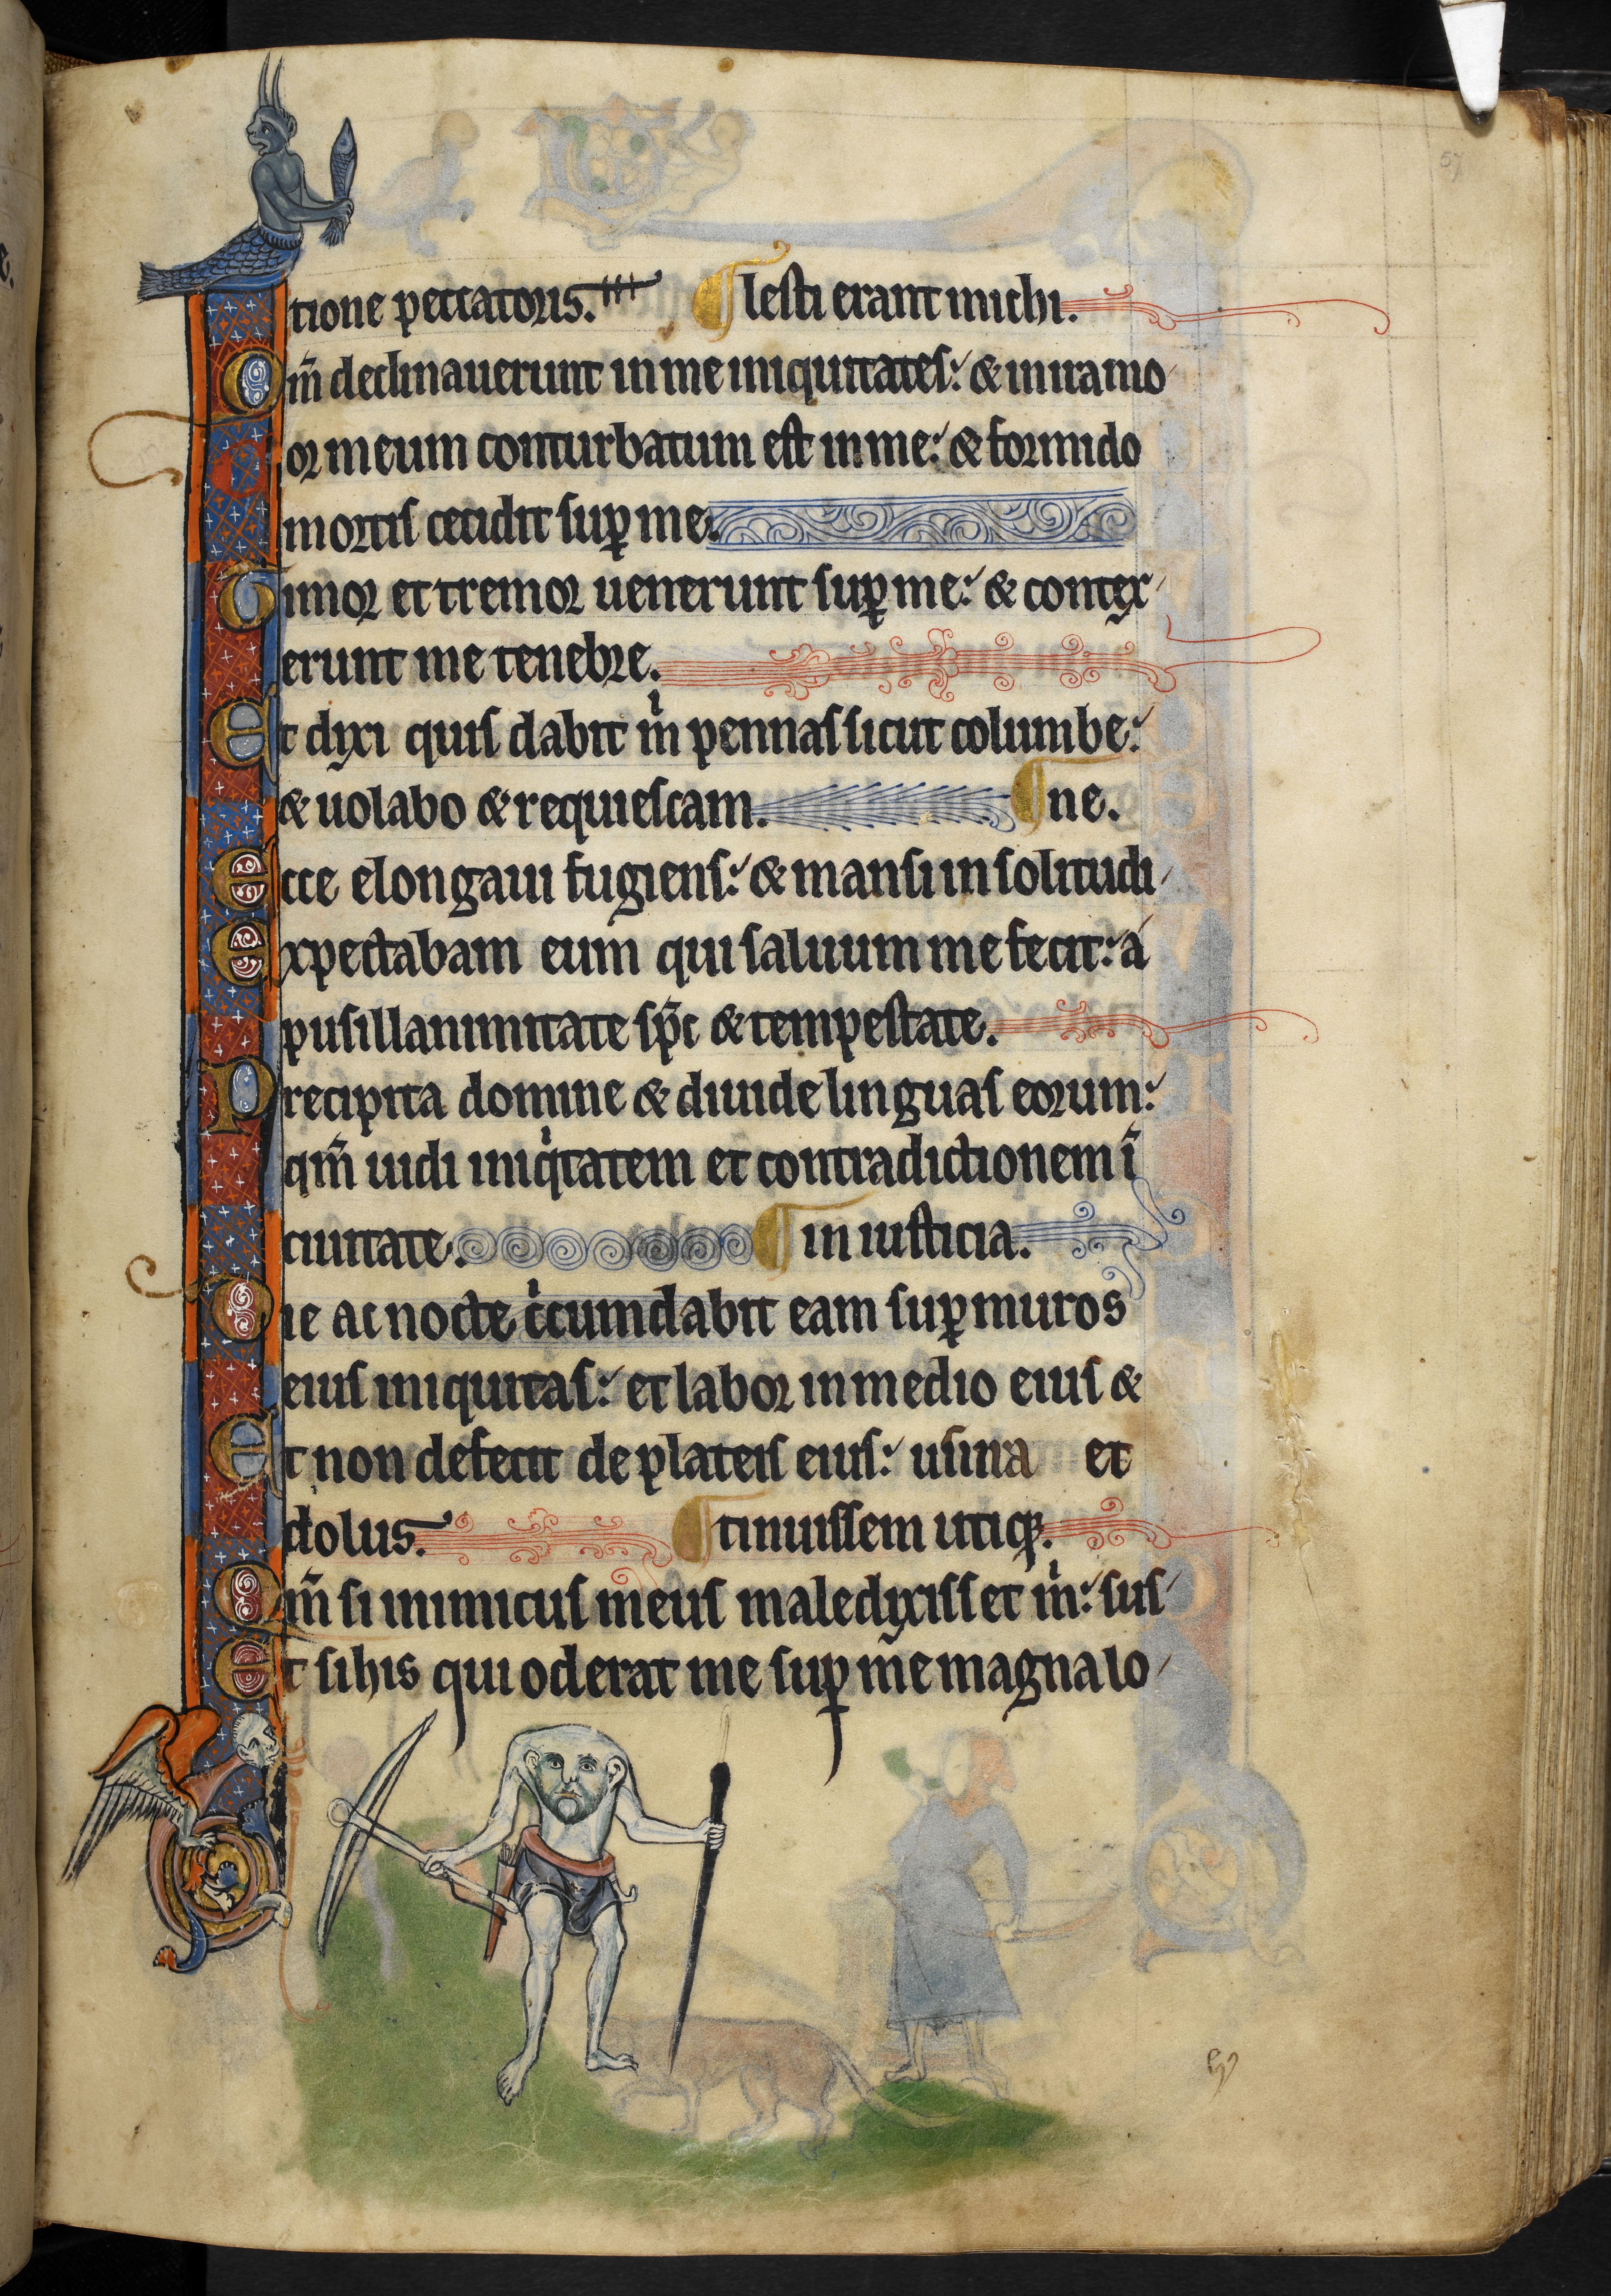 57
tione peccatoris. ¶ lesti erant michi.
Qm̄ declinauerunt in me iniquitates: & in ira mo
or meum conturbatum est in me: & formido
mortis cecidit sup̱ me.
Timor et tremor uenerunt sup̱ me: & contex
erunt me tenebre.
Et dixi quis dabit m̍ pennas sicut columbe:
& uolabo & requiescam. ¶ ne.
Ecce elongaui fugiens: & mansi in solitudi
Expectabam eum qui saluum me fecit: a
pusillanimitate sp̄c & tempestate.
Precipita domine & diuide linguas eorum:
qm̄ uidi iniq̍tatem et contradictionem ī
ciuitate. ¶ in iusticia.
Die ac nocte c̍cumdabit eam sup̱ muros
eius iniquitas: et labor in medio eius &
Et non defecit de plateis eius: usura et
dolus. ¶ tinuissem utiqꝫ.
Qm̄ si inimicus meus maledixisset m̍: sus
Et si his qui oderat me sup̱ me magna lo